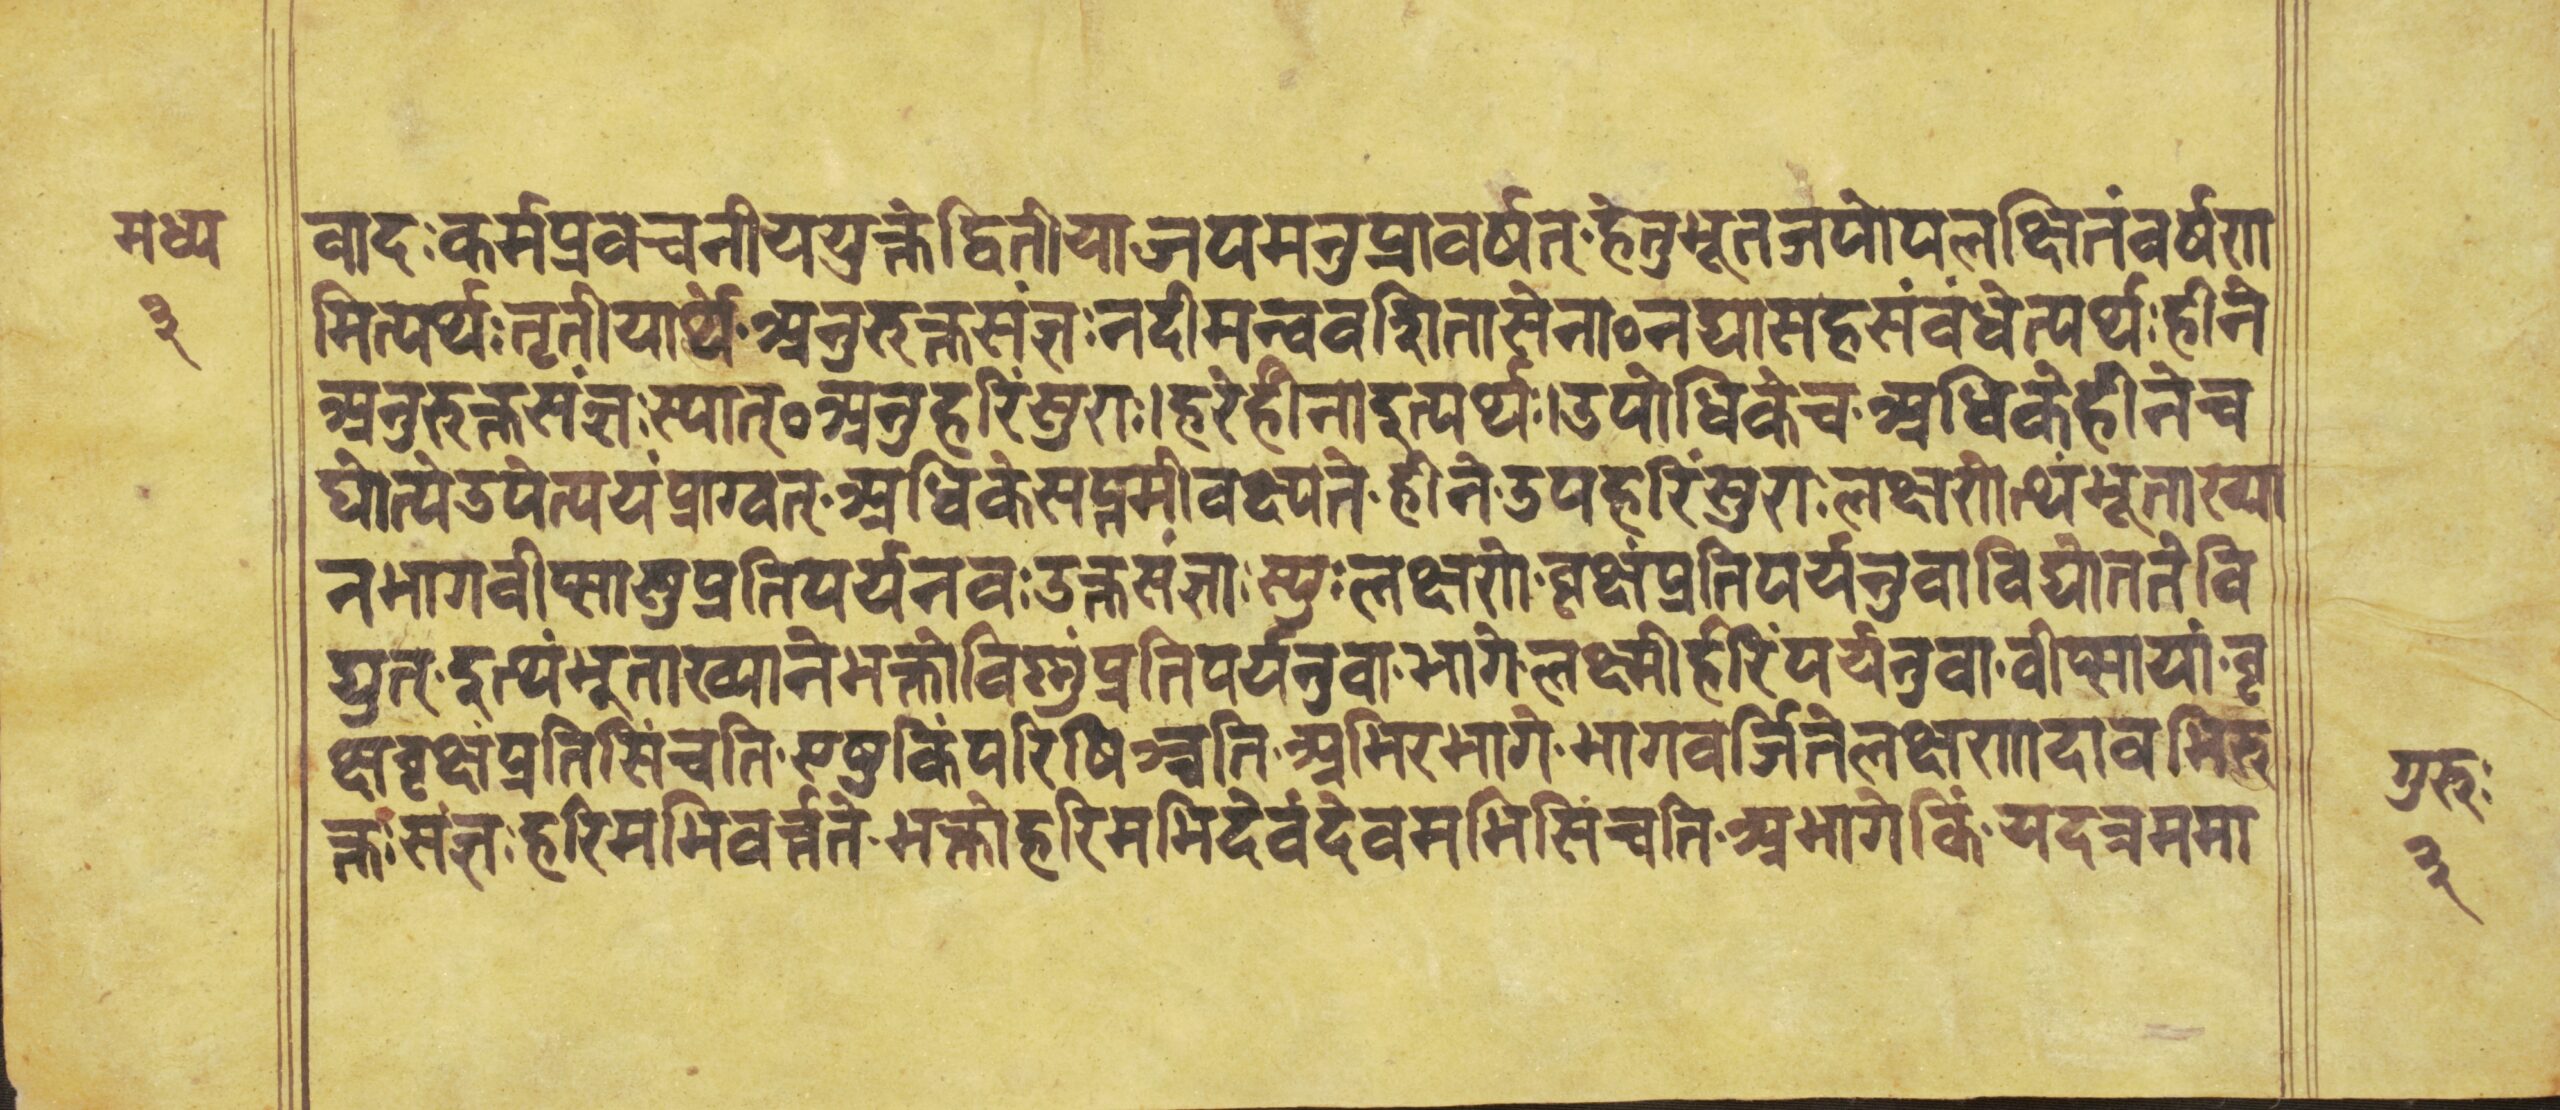 मध्य
३
वादः कर्मप्रवचनीययुक्ते द्वितीया जपमनुप्रावर्षत् हेतुभूतजपोपलक्षितं वर्षणा
मित्यर्थः तृतीयार्थे अनुरुक्तसंज्ञः नदीमन्ववसिता सेना० नद्या सह संवंधेत्यर्थः हीने
अनुरुक्तसंज्ञः स्यात्० अनु हरिं सुराः। हरेर्हीना इत्यर्थः। उपोधिके च अधिके हीने च
द्योत्ये उपेत्ययं प्राग्वत् अधिके सप्तमी वक्ष्यते हीने उप हरिं सुराः लक्षणेत्थंभूताख्या
नभागवीप्सासु प्रतिपर्यनवः उक्तसंज्ञाः स्युः लक्षणे वृक्षं प्रति पर्यनु वा विद्योतते वि
द्युत् इत्थंभूताख्याने भक्तो विष्णुं प्रति पर्यनु वा भागे लक्ष्मीर्हरिं पर्यनु वा वीप्सायां वृ
क्षं वृक्षं प्रति सिंचति एषु किं परिषिञ्चति अभिरभागे भागवर्जिते लक्षणादावभिरु
क्तः संज्ञः हरिमभिवर्त्तते भक्तो हरिमभि देवं देवमभिसिंचति अभागे किं यदत्र ममा
गुरुः
३